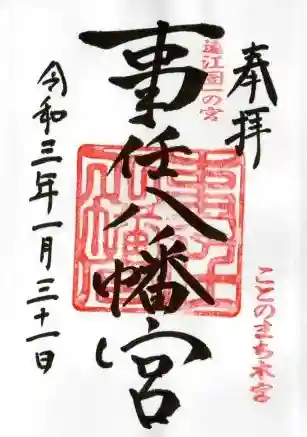 奉拝
遠江国一の宮
ことのまち本宮
事任八幡宮
令和三年一月三十一日